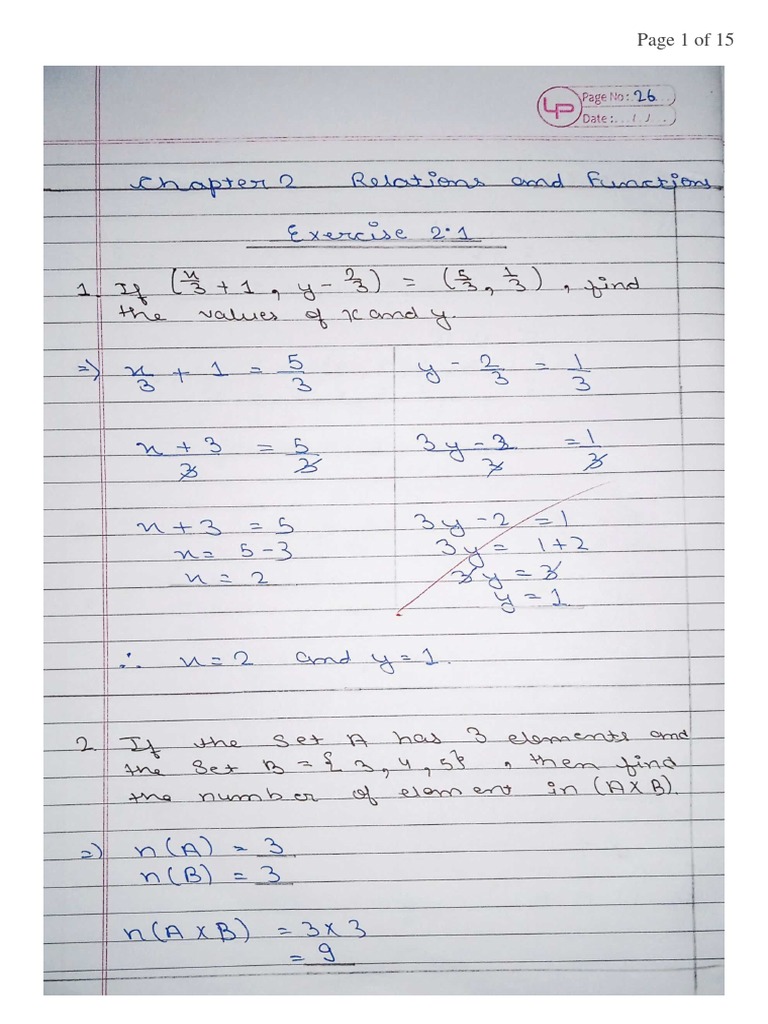 Page 1 of 15
LP
Page No: 26
Date: / /
Chapter 2 Relations and Functions
Exercise 2.1
1. If (x/3 + 1, y - 2/3) = (5/3, 1/3), find
the values of x and y.
=> x/3 + 1 = 5/3 y - 2/3 = 1/3
x + 3/3 = 5/3 3y - 2/3 = 1/3
x + 3 = 5 3y - 2 = 1
x = 5 - 3 3y = 1 + 2
x = 2 3y = 3
y = 1
∴ x = 2 and y = 1.
2 If the Set A has 3 elements and
the Set B = { 3, 4, 5}, then find
the number of element in (A x B).
=> n(A) = 3
n(B) = 3
n(A x B) = 3 x 3
= 9